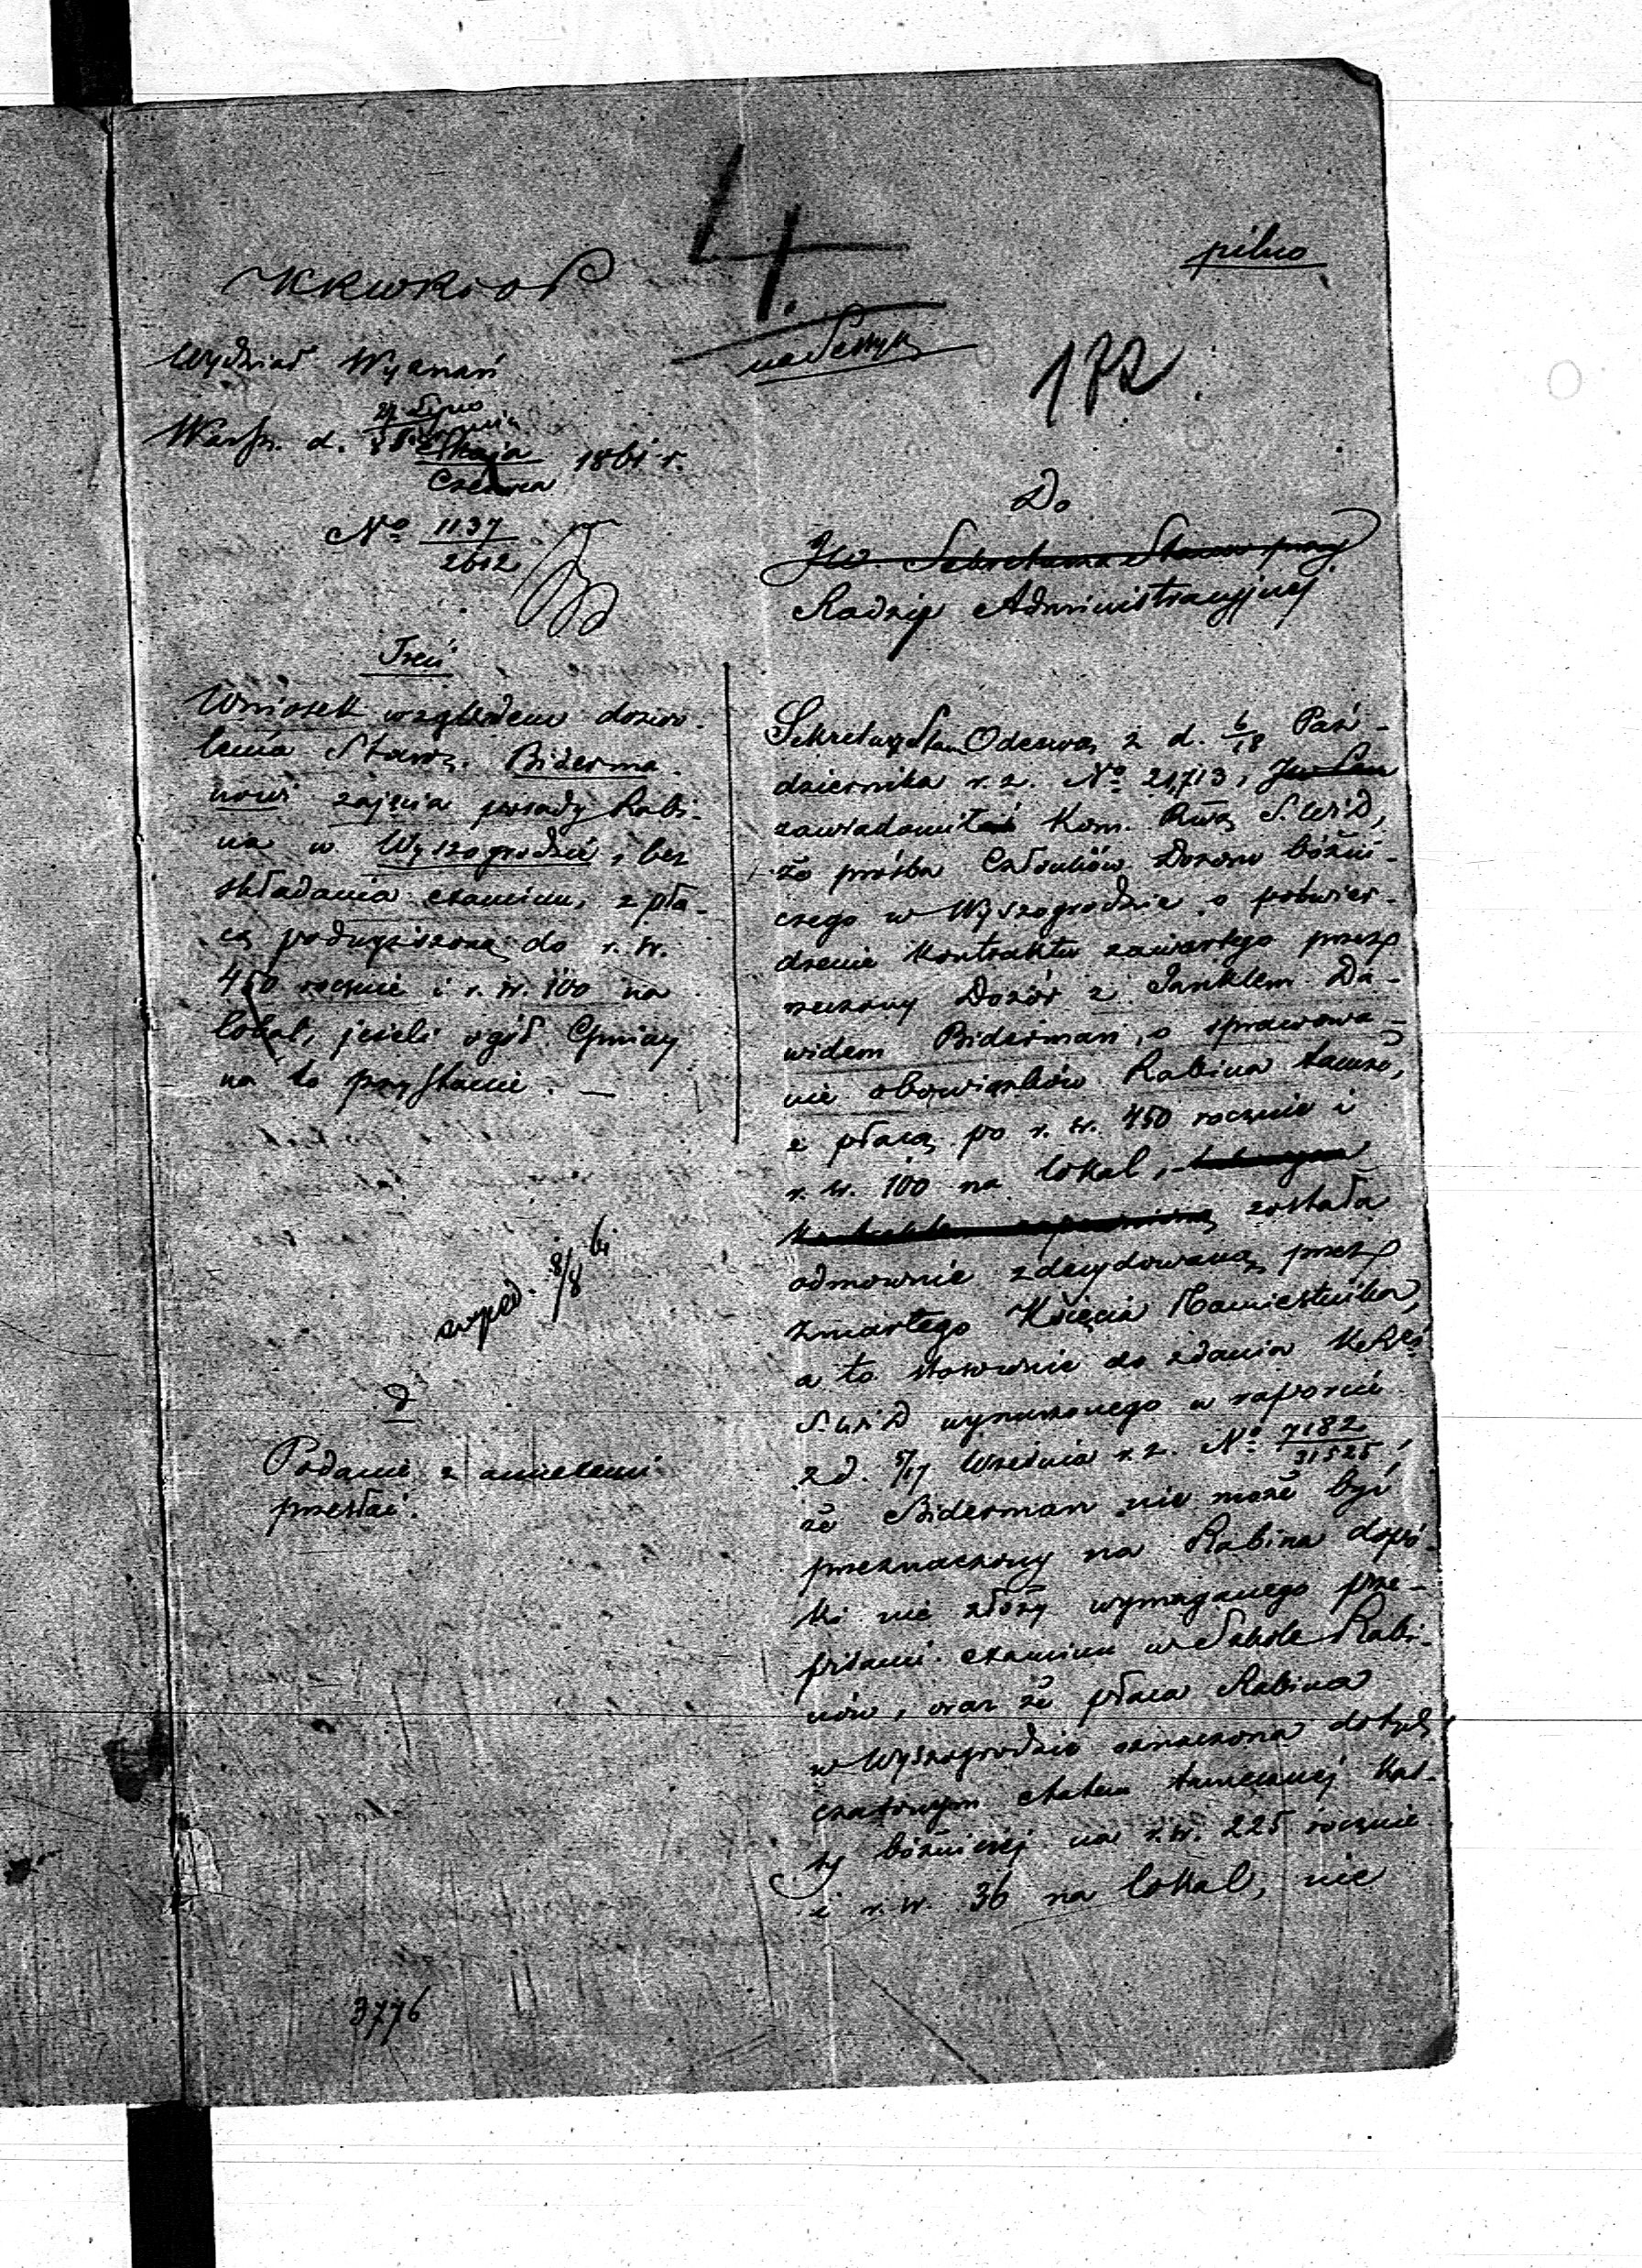 4.
pilno
KRWRiOP
172
Wydział Wyznań
Warsz. d. 27 Lipca
Maja 1861 r.
Czerwca
No 1137
2612
Do
JW Sekretarza Stanu przy
Radzie Administracyjnej
Treść
Wniosek względem dozwo-
lenia Staroz. Biderma-
nowi zajęcia posady Rabi-
na w Wyszogrodzie, bez
składania examinu, z pła-
cą podwyższoną do r. sr.
450 rocznie i r. sr. 100 na
lokal, jeżeli ogół Gminy
na to przystanie. —
exped. 8/8 61
Podanie z anexami
przesłać.
3776
Sekretarz Stanu Odezwą z d. 6/18 Paź-
dziernika r. z. No 21,713,
zawiadomił Kom. Rwą S. W i D,
że prośba Członków Dozoru bóżni-
czego w Wyszogrodzie o potwier-
dzenie kontraktu zawartego przez
rzeczony Dozór z Janklem Da-
widem Biderman, o sprawowa-
nie obowiązków Rabina tamże,
z płacą po r. sr. 450 rocznie i
r. sr. 100 na lokal,
została
odmownie zdecydowaną przez
zmarłego Księcia Namiestnika,
a to stosownie do zdania K R
S. W i D wyrażonego w raporcie
z d. 5/17 Września r. z. No 7182
31525,
że Biderman nie może być
przeznaczony na Rabina dopó-
ki nie złoży wymaganego prze-
pisami examinu w Szkole Rabi-
nów, oraz że płaca Rabina
w Wyszogrodzie oznaczona dotych-
czasowym etatem tamecznej Kas-
sy bóżniczej na r. sr. 225 rocznie
i r. sr. 36 na lokal, nie